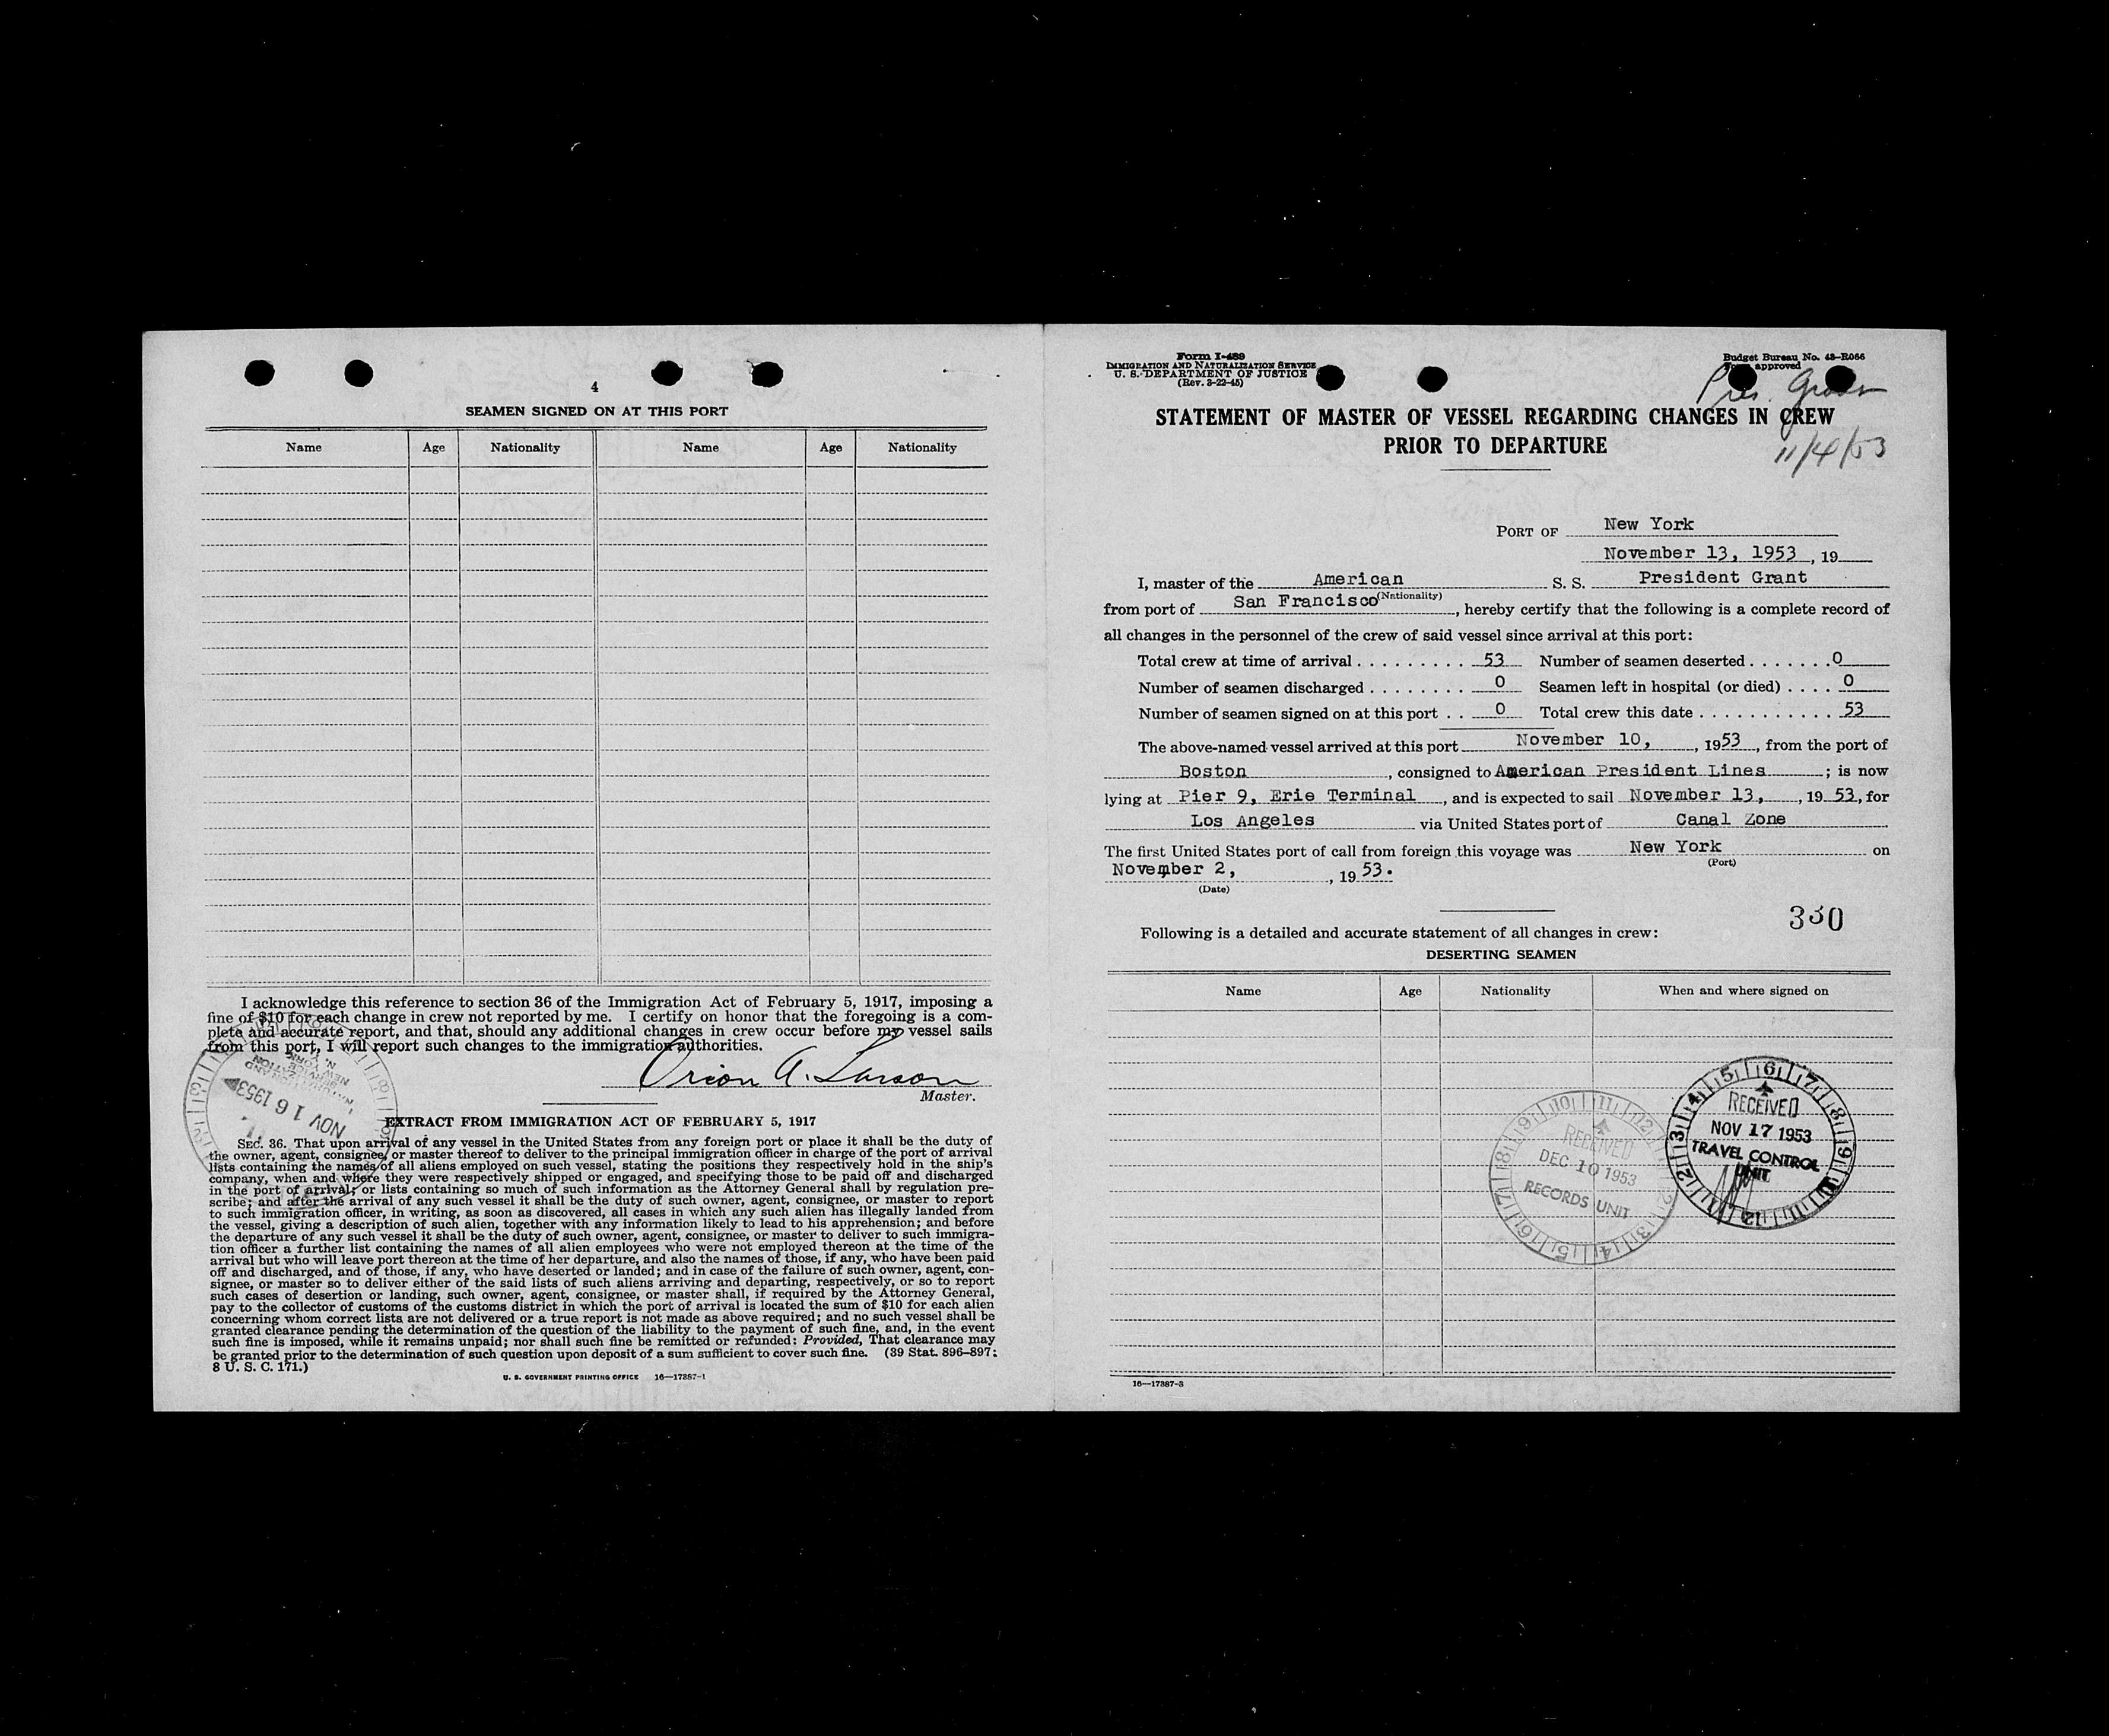 4
SEAMEN SIGNED ON AT THIS PORT
Name Age Nationality Name Age Nationality
I acknowledge this reference to section 36 of the Immigration Act of February 5, 1917, imposing a
fine of $10 for each change in crew not reported by me. I certify on honor that the foregoing is a com-
plete and accurate report, and that, should any additional changes in crew occur before my vessel sails
from this port, I will report such changes to the immigration authorities.
Orion A. Larson
Master.
NOV 16 1953
EXTRACT FROM IMMIGRATION ACT OF FEBRUARY 5, 1917
SEC. 36. That upon arrival of any vessel in the United States from any foreign port or place it shall be the duty of
the owner, agent, consignee, or master thereof to deliver to the principal immigration officer in charge of the port of arrival
lists containing the names of all aliens employed on such vessel, stating the positions they respectively hold in the ship's
company, when and where they were respectively shipped or engaged, and specifying those to be paid off and discharged
in the port of arrival; or lists containing so much of such information as the Attorney General shall by regulation pre-
scribe; and after the arrival of any such vessel it shall be the duty of such owner, agent, consignee, or master to report
to such immigration officer, in writing, as soon as discovered, all cases in which any such alien has illegally landed from
the vessel, giving a description of such alien, together with any information likely to lead to his apprehension; and before
the departure of any such vessel it shall be the duty of such owner, agent, consignee, or master to deliver to such immigra-
tion officer a further list containing the names of all alien employees who were not employed thereon at the time of the
arrival but who will leave port thereon at the time of her departure, and also the names of those, if any, who have been paid
off and discharged, and of those, if any, who have deserted or landed; and in case of the failure of such owner, agent, con-
signee, or master so to deliver either of the said lists of such aliens arriving and departing, respectively, or so to report
such cases of desertion or landing, such owner, agent, consignee, or master shall, if required by the Attorney General,
pay to the collector of customs of the customs district in which the port of arrival is located the sum of $10 for each alien
concerning whom correct lists are not delivered or a true report is not made as above required; and no such vessel shall be
granted clearance pending the determination of the question of the liability to the payment of such fine, and, in the event
such fine is imposed, while it remains unpaid; nor shall such fine be remitted or refunded: Provided, That clearance may
be granted prior to the determination of such question upon deposit of a sum sufficient to cover such fine. (39 Stat. 896-897;
8 U. S. C. 171.)
U. S. GOVERNMENT PRINTING OFFICE 16—17387-1
Form I-489
IMMIGRATION AND NATURALIZATION SERVICE
U. S. DEPARTMENT OF JUSTICE
(Rev. 3-22-45)
Budget Bureau No. 43-R066
approved
Pres. Grant
11/4/53
STATEMENT OF MASTER OF VESSEL REGARDING CHANGES IN CREW
PRIOR TO DEPARTURE
PORT OF New York
November 13, 1953, 19
I, master of the American S. S. President Grant
(Nationality)
from port of San Francisco, hereby certify that the following is a complete record of
all changes in the personnel of the crew of said vessel since arrival at this port:
Total crew at time of arrival . . . . . . . . . 53 Number of seamen deserted . . . . . . . 0
Number of seamen discharged . . . . . . . . 0 Seamen left in hospital (or died) . . . . 0
Number of seamen signed on at this port . . 0 Total crew this date . . . . . . . . . . . 53
The above-named vessel arrived at this port November 10, , 1953, from the port of
Boston, consigned to American President Lines; is now
lying at Pier 9, Erie Terminal, and is expected to sail November 13, , 19 53, for
Los Angeles via United States port of Canal Zone
The first United States port of call from foreign this voyage was New York on
(Port)
November 2, , 19 53.
(Date)
330
Following is a detailed and accurate statement of all changes in crew:
DESERTING SEAMEN
Name Age Nationality When and where signed on
RECEIVED
DEC 10 1953
RECORDS UNIT
RECEIVED
NOV 17 1953
TRAVEL CONTROL
UNIT
16—17387-3